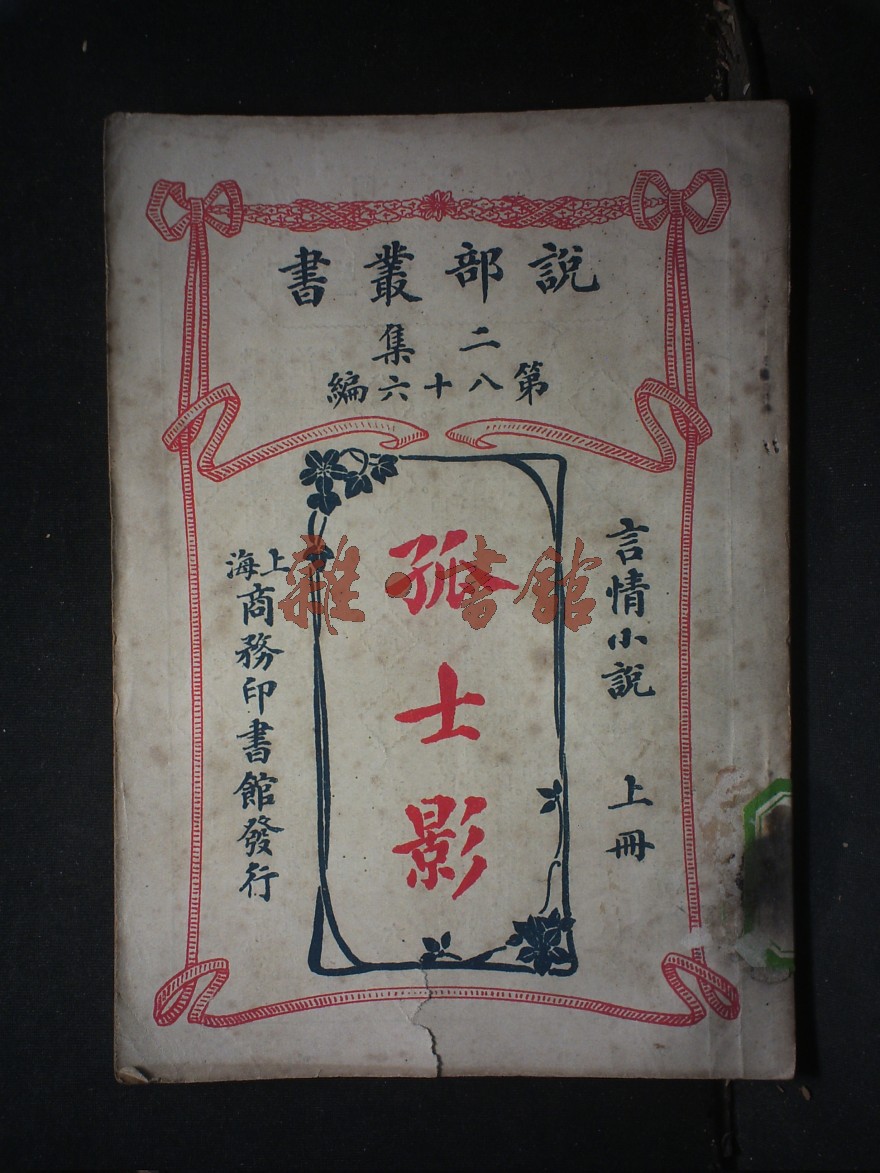 說部叢書
二集
第八十六編
言情小說 上冊
孤士影
上海商務印書館發行
雜·書館